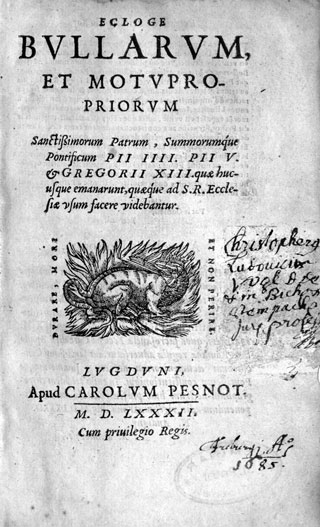 ECLOGE
BVLLARVM,
ET MOTVPRO-
PRIORVM
Sanctißimorum Patrum, Summorumque
Pontificum PII IIII. PII V.
& GREGORII XIII. quæ huc-
usque emanarunt, quæque ad S. R. Eccle-
siæ vsum facere videbantur.
DVRARE, MORI
ET NON PERIRE.
Christopherg
Ludouicus
LVGDVNI,
Apud CAROLVM PESNOT.
M. D. LXXXII.
Cum priuilegio Regis.
Aº
1685.